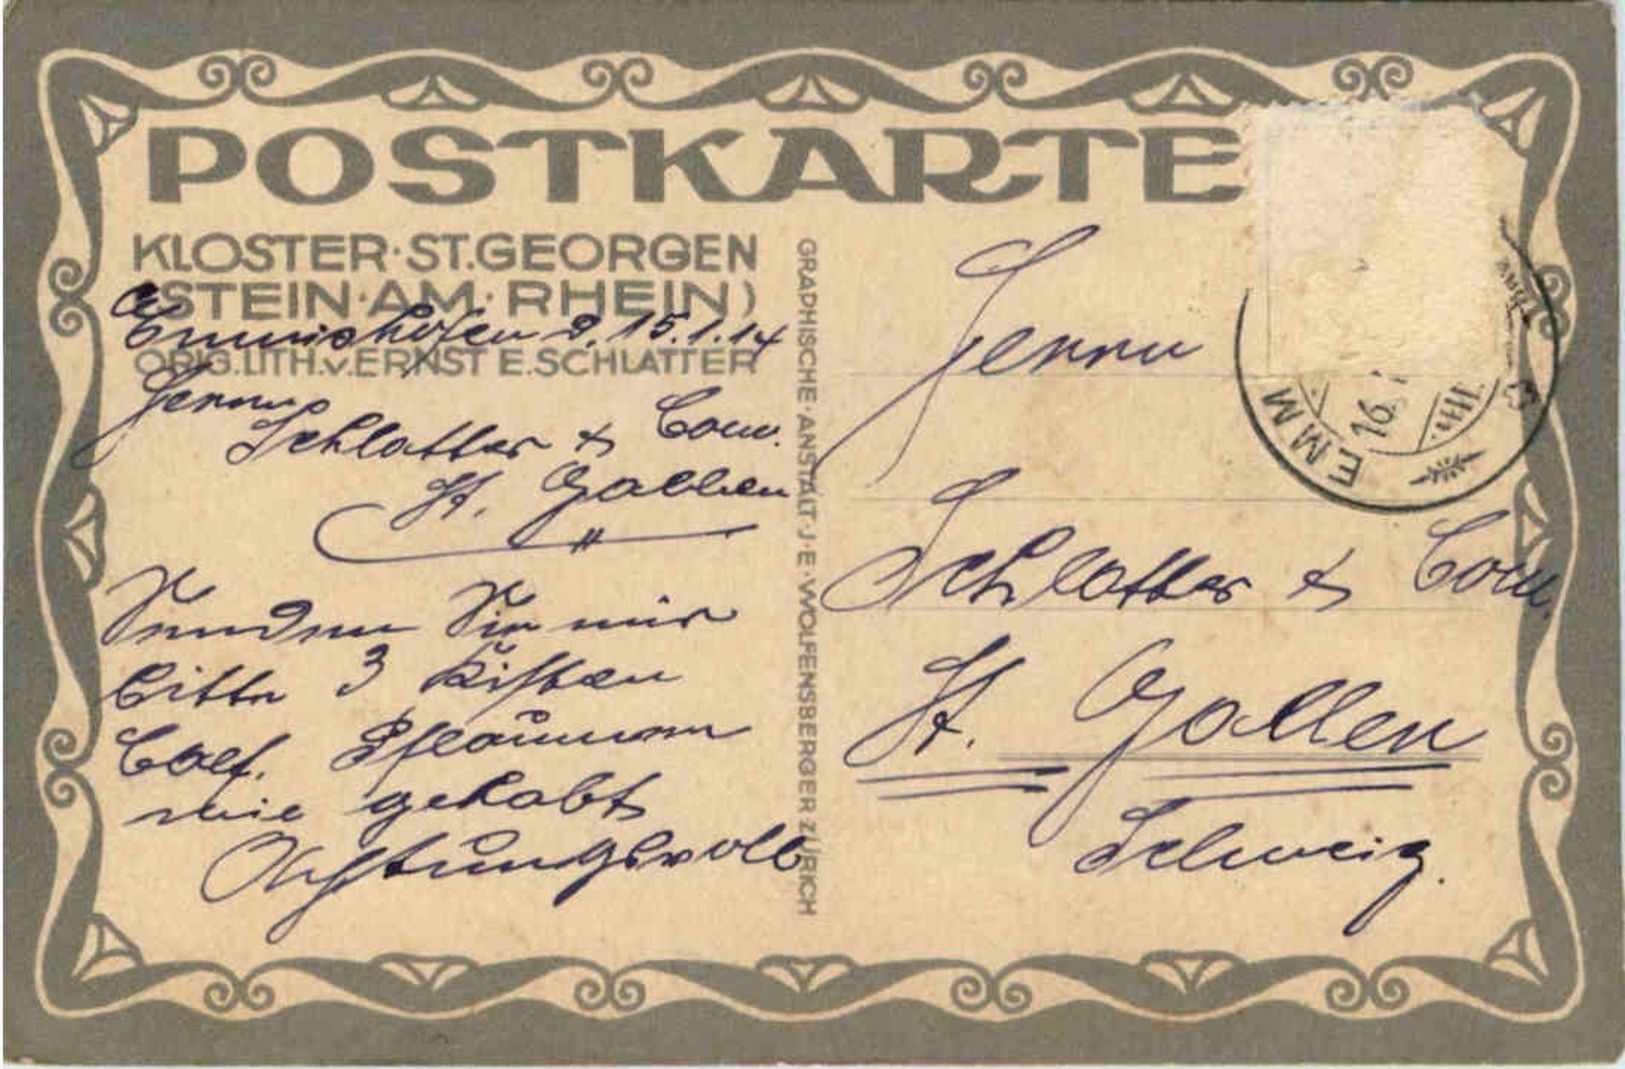 POSTKARTE
KLOSTER·ST.GEORGEN
(STEIN·AM·RHEIN)
Emmishofen d. 15.1.14
ORIG.LITH.v.ERNST E.SCHLATTER
Herrn
Schlatter & Com.
St. Gallen
Senden Sie mir
bitte 3 Kisten
Calf. Pflaumen
wie gehabt
Achtungsvoll
GRAPHISCHE·ANSTALT·J·E·WOLFENSBERGER ZÜRICH
Herrn
Schlatter & Com.
St. Gallen
Schweiz.
EMM
16.